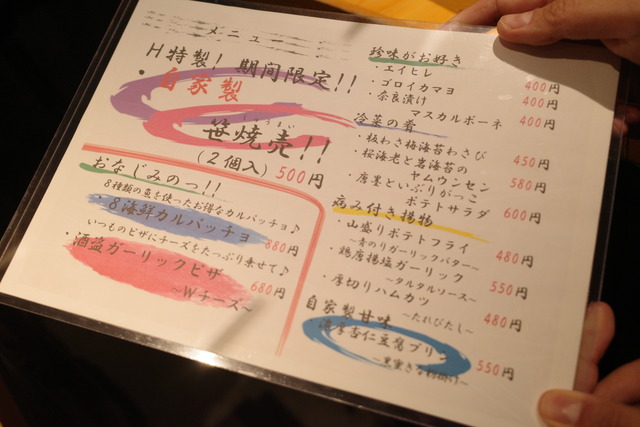 メニュー
H特製! 期間限定!!
・自家製
しゅうまい
笹焼売!!
(2個入) 500円
おなじみのっ!!
8種類の魚を使ったお得なカルパッチョ♪
・8海鮮カルパッチョ
880円
いつものピザにチーズをたっぷり乗せて♪
・酒盗ガーリックピザ
~Wチーズ~ 680円
珍味がお好き
・エイヒレ 400円
・ゴロイカマヨ 400円
・奈良漬け
マスカルポーネ 400円
冷菜の肴
・板わさ梅海苔わさび 450円
・桜海老と岩海苔の
ヤムウンセン 580円
・唐墨といぶりがっこ
ポテトサラダ 600円
病み付き揚物
・山盛りポテトフライ
~青のりガーリックバター~ 480円
・鶏唐揚塩ガーリック
~タルタルソース~ 550円
・厚切りハムカツ
~たれびたし~ 480円
自家製甘味
濃厚杏仁豆腐プリン
~黒蜜きな粉掛け~ 550円